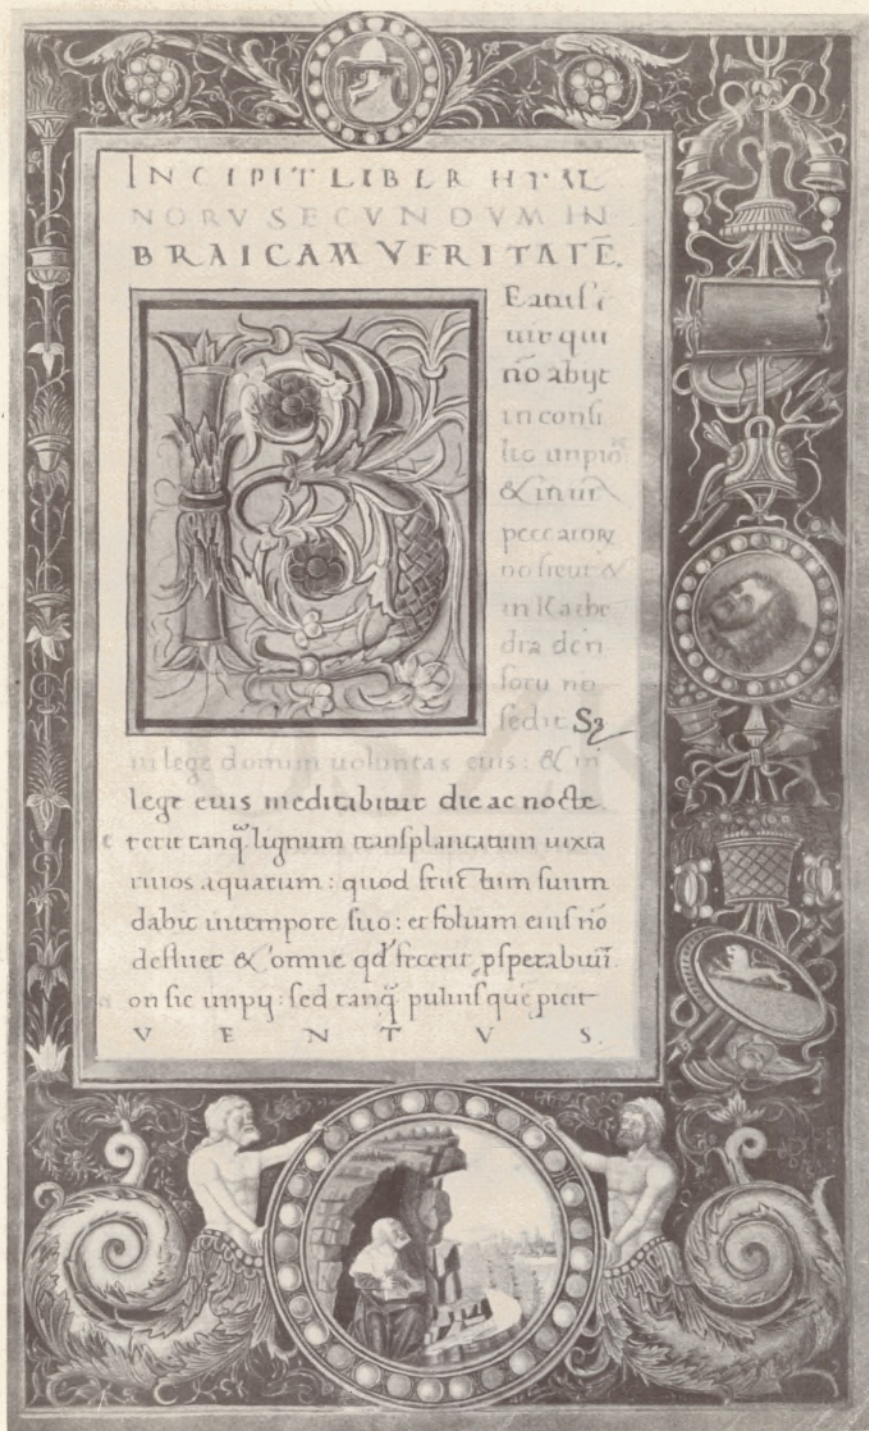 INCIPIT LIBER HYM
NORV SECVNDVM IN
BRAICAM VERITATĒ.
Eatuſ ē
uir qui
nō abijt
in conſi
lio impioꝝ
& in uia
peccatorꝝ
no ſtetit &
in Kathe
dra deri
ſoru no
ſedit Sꝫ
in lege domini uoluntas eius: & in
lege eius meditabitur die ac nocte.
e t erit tanq̃ lignum tranſplantatum iuxta
riuos aquarum: quod fructum ſuum
dabit in tempore ſuo: et folium eiuſ nō
defluet & omne qd' fecerit ꝓſperabiť
on ſic impij: ſed tanq̃ puluiſ quē ꝓicit
VENTVS.